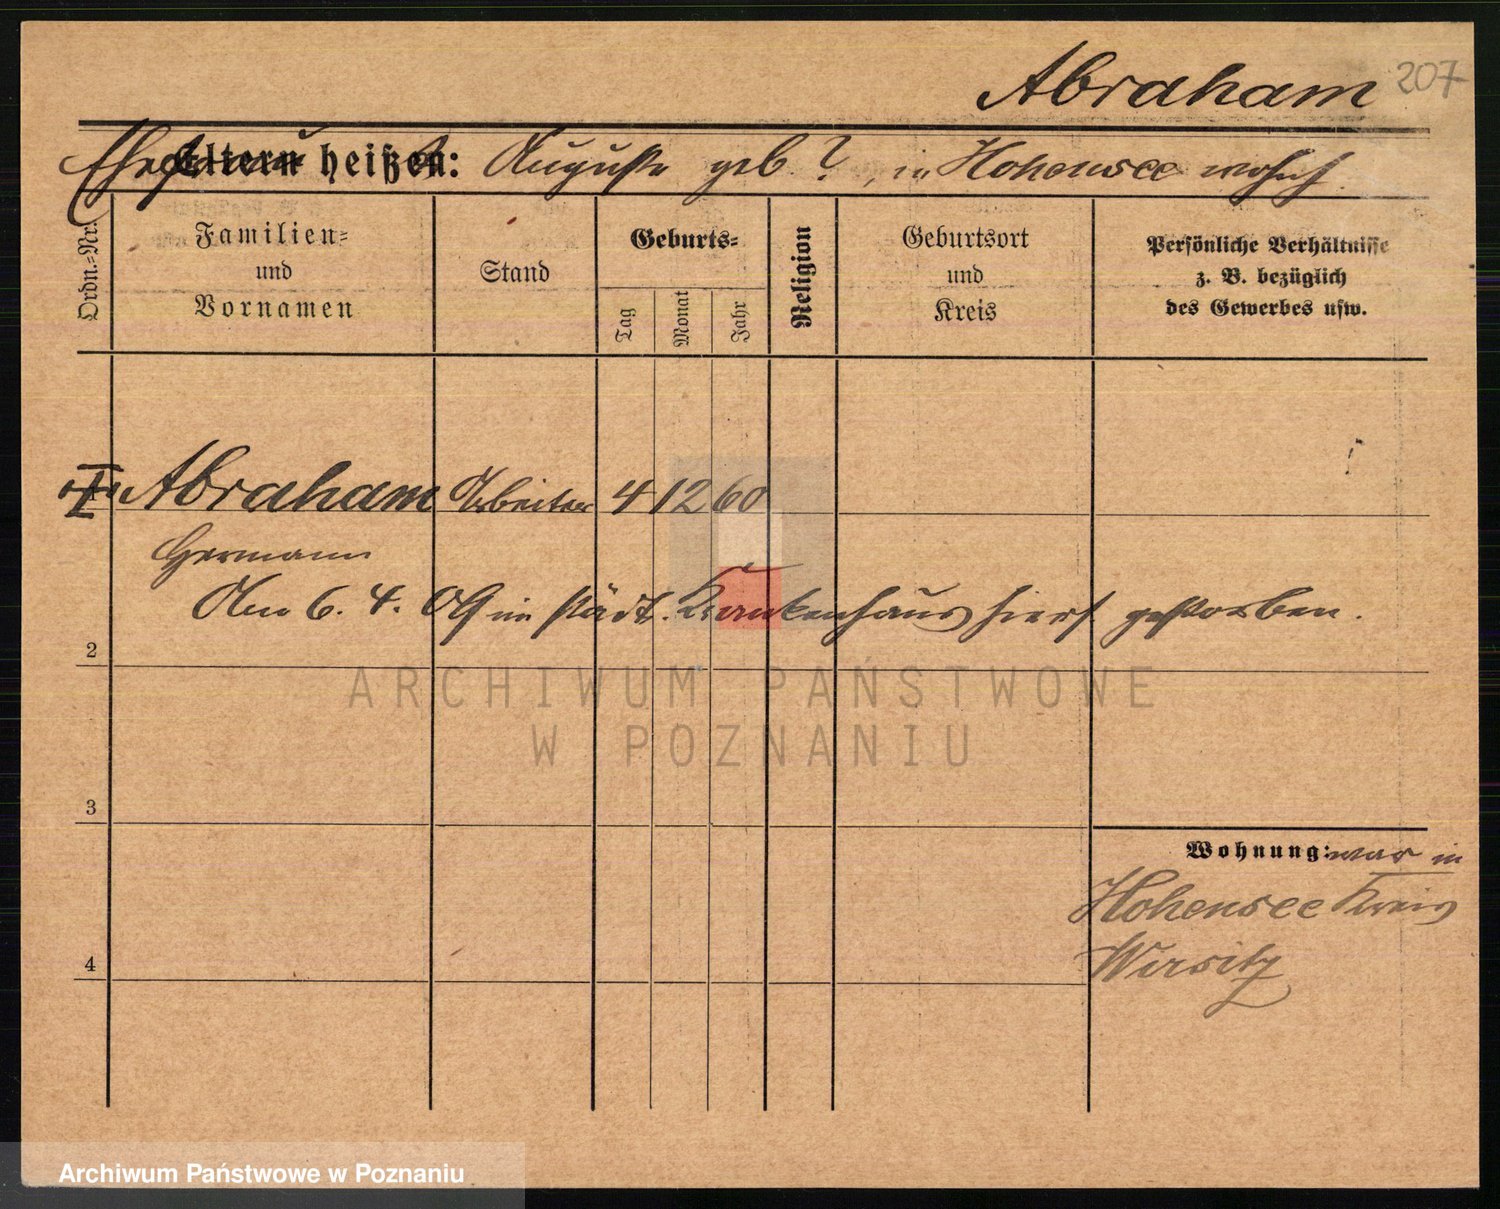 Abraham 207
Ehefrau Eltern heißen: Auguste geb. ?, in Hohensee wohnh.
Ordn.-Nr.
Familien-
und
Vornamen
Stand
Geburts-
Tag
Monat
Jahr
Religion
Geburtsort
und
Kreis
Persönliche Verhältnisse
z. B. bezüglich
des Gewerbes usw.
I Abraham Arbeiter 4 12 60
Hermann
Am 6. 4. 09 im städt. Krankenhaus hiers. gestorben.
2
ARCHIWUM PAŃSTWOWE
W POZNANIU
3
Wohnung: war in
Hohensee Kreis
4
Wirsitz
Archiwum Państwowe w Poznaniu